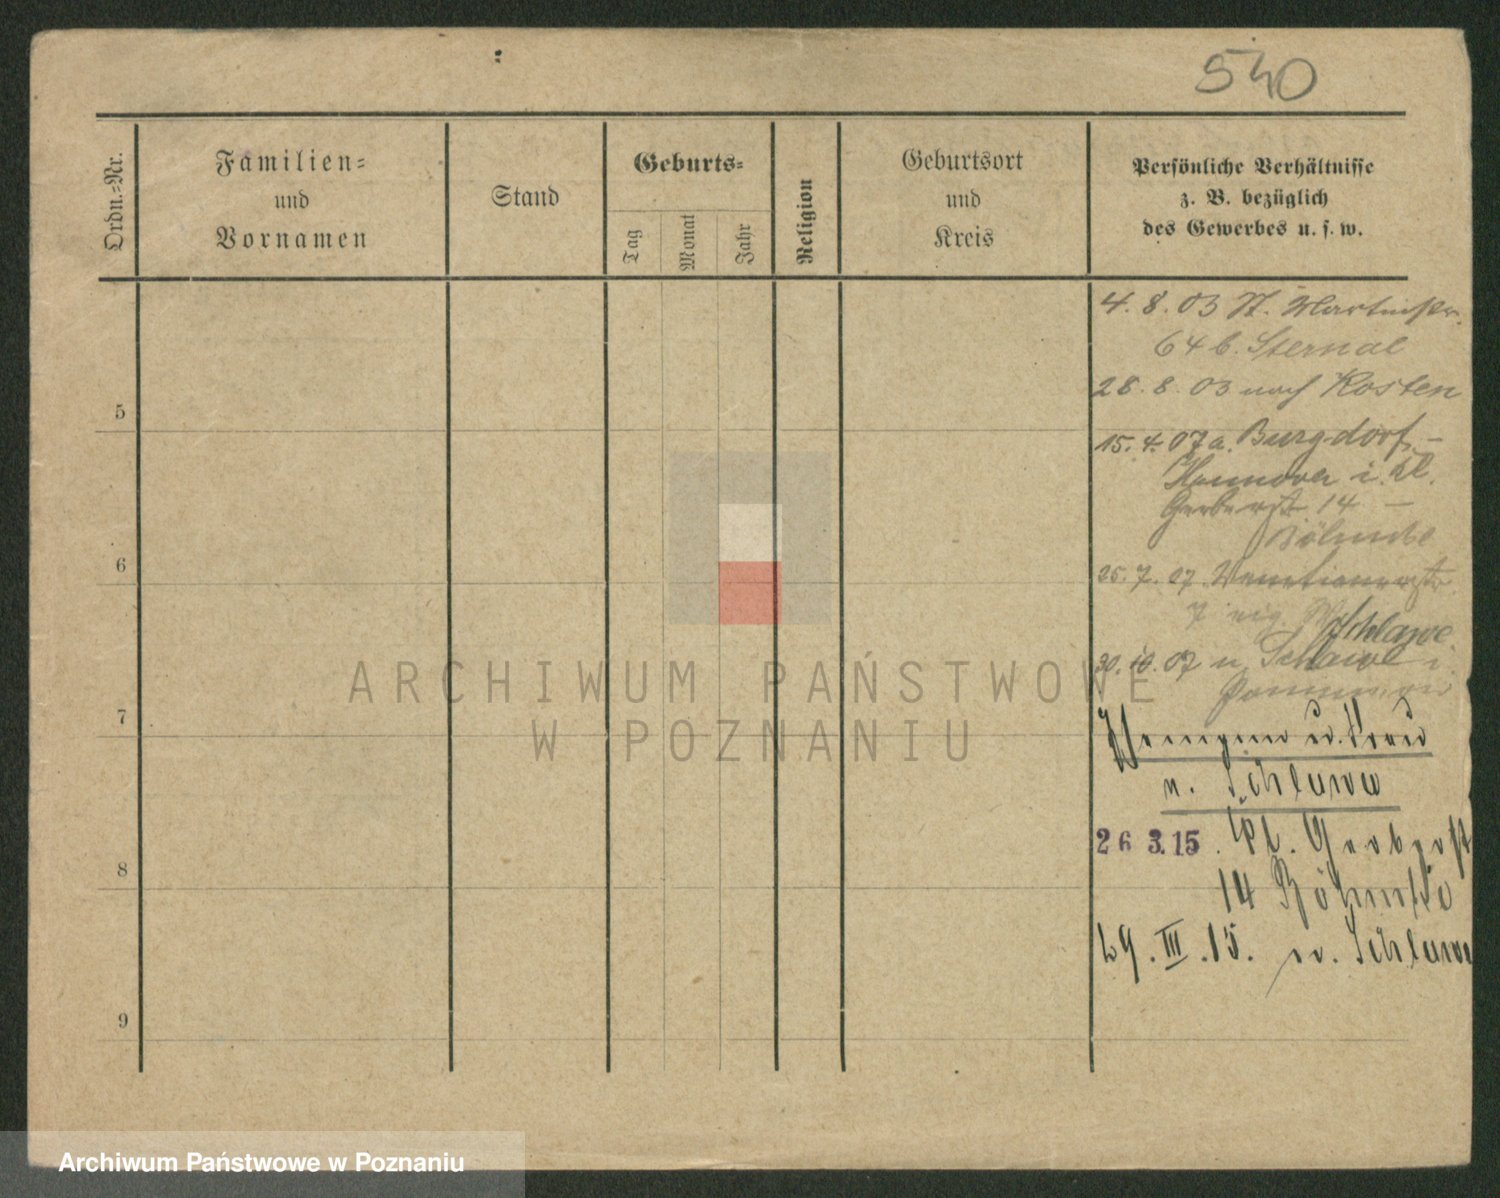 540
Ordn.-Nr.
Familien-
und
Vornamen
Stand
Geburts-
Tag
Monat
Jahr
Religion
Geburtsort
und
Kreis
Persönliche Verhältnisse
z. B. bezüglich
des Gewerbes u. s. w.
4. 8. 03 St. Martinstr.
64 b. Sternal
28. 8. 03 nach Kosten
5
15. 4. 07 a. Burgdorf –
Hannover i. Kl.
Gerberstr 14 –
Böhmke
6
25. 7. 07. Venetianerstr
7 eig.
Schlawe
30. 10. 07 n. Schlawe i.
Pommern
7
n. Schlawe
26 3. 15. Kl. Gerberst
8
14 Böhmke
29. III. 15. Schlawe
9
ARCHIWUM PAŃSTWOWE
W POZNANIU
Archiwum Państwowe w Poznaniu